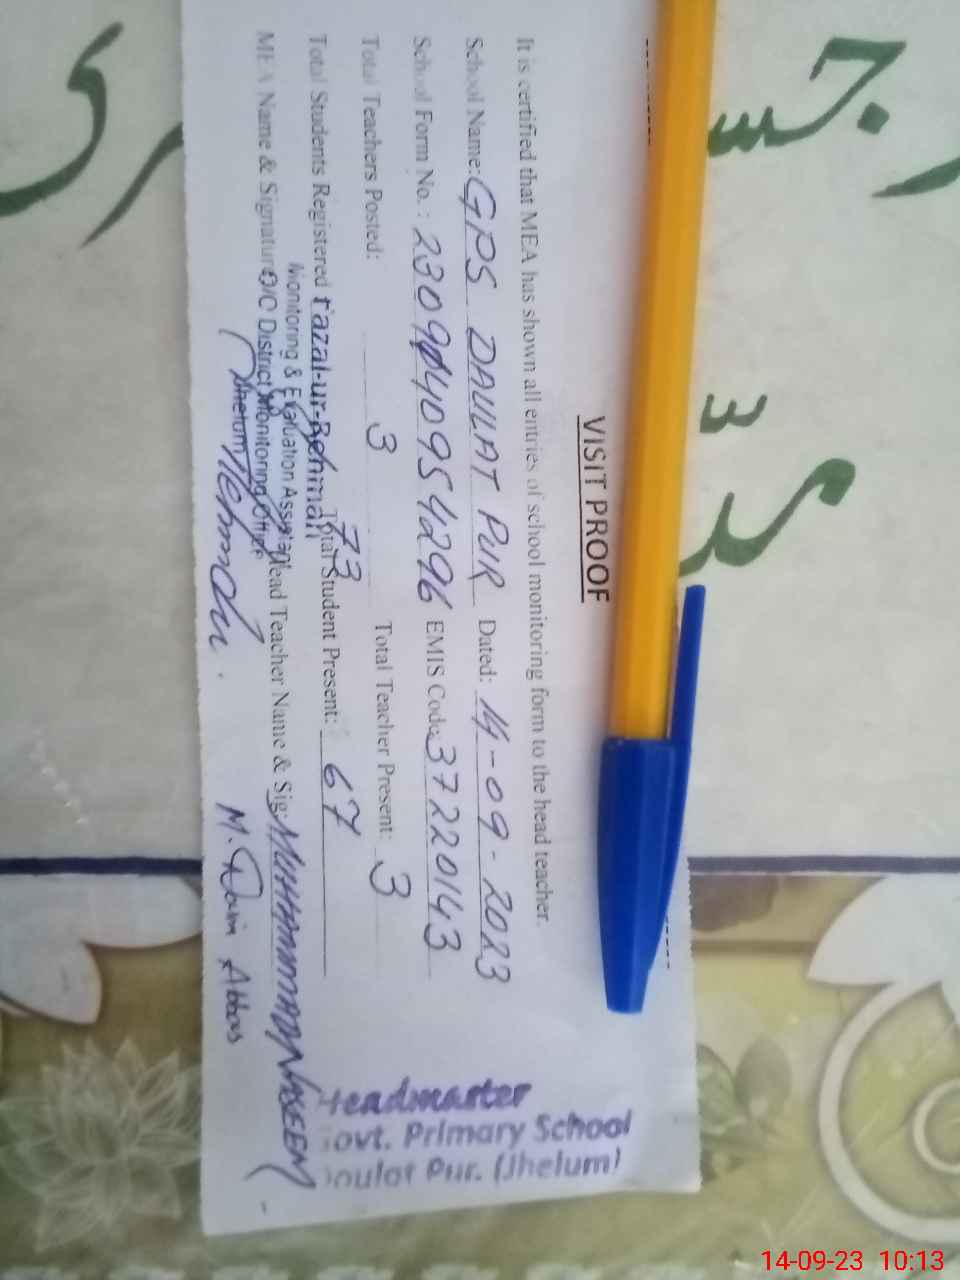 VISIT PROOF
It is certified that MEA has shown all entries of school monitoring form to the head teacher.
School Name: GPS DAULAT PUR Dated: 14-09-2023
School Form No.: 2309 4095 4296 EMIS Code: 37220143
Total Teachers Posted: 3 Total Teacher Present: 3
Total Students Registered 73 Total Student Present: 67
Fazal-ur-Rehman
Monitoring & Evaluation Assistant
MEA Name & Signature Head Teacher Name & Sig: MUHAMMAD NASEEM
O/C District Monitoring Office
Jhelum
M. Abbas
Headmaster
Govt. Primary School
Doulat Pur. (Jhelum)
14-09-23 10:13